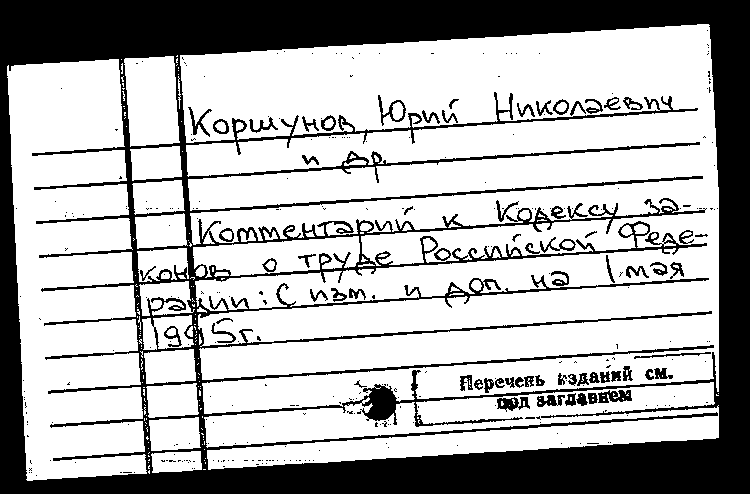 Коршунов, Юрий Николаевич
и др.
Комментарий к Кодексу за-
конов о труде Российской Феде-
рации: С изм. и доп. на 1 мая
1995г.
Перечень изданий см.
под заглавием